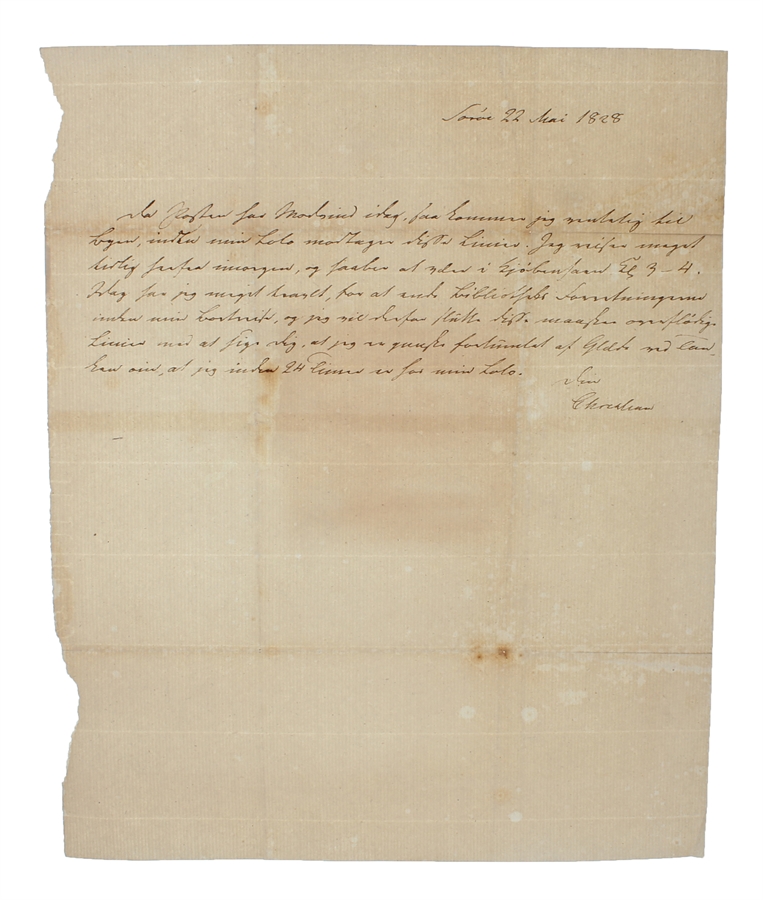 Sorøe 22 Mai 1828
Da Posten har Modvind idag, saa kommer jeg ventelig til
Byen, inden min Lolo modtager disse Linier. Jeg reiser meget
tidlig herfra imorgen, og haaber at være i Kjøbenhavn Kl 3-4.
Idag har jeg meget travlt, for at ende Bibliotheks Forretningerne
inden min Bortreise, og jeg vil derfor slutte disse maaskee overflødige
Linier med at sige dig, at jeg er ganske fortumlet af Glæde ved Tan-
ken om, at jeg inden 24 Timer er hos min Lolo.
Din
Christian